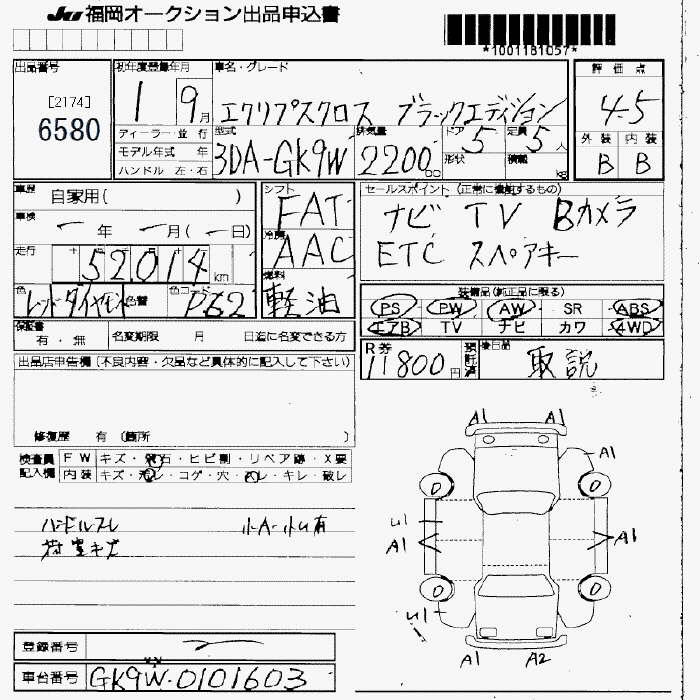 JU 福岡オークション出品申込書
*1001181057*
出品番号
[2174]
6580
初年度登録年月
1 9月
車名・グレード
エクリプスクロス ブラックエディション
評価点
4.5
外装 内装
B B
ディーラー・並行
モデル年式 年
ハンドル 左・右
型式
3DA-GK9W
排気量
2200cc
ドア 5
形状
定員 5人
積載 kg
車歴
自家用( )
車検
ー年 ー月(ー日)
走行
52,014km
色
レッドダイヤモンド
色替
色コード
P62
シフト
FAT
冷房
AAC
燃料
軽油
セールスポイント (正常に機能するもの)
ナビ TV Bカメラ
ETC スペアキー
装備品(純正品に限る)
PS PW AW SR ABS
エアB TV ナビ カワ 4WD
保証書
有・無
名変期限 月 日迄に名変できる方
R券
11800円
預託済
後日品
取説
出品店申告欄 (不良内容・欠品など具体的に記入して下さい)
修復歴 有 (箇所 )
検査員記入欄
FW キズ・飛石・ヒビ割・リペア跡・X要
内装 キズ・汚レ・コゲ・穴・スレ・キレ・破レ
ハンドルスレ 小A・小U有
荷室キズ
A1 A2
A1 A1
A1
U1
A1 A1
U1
A1 A2
登録番号
ー
車台番号
GK9W-0101603